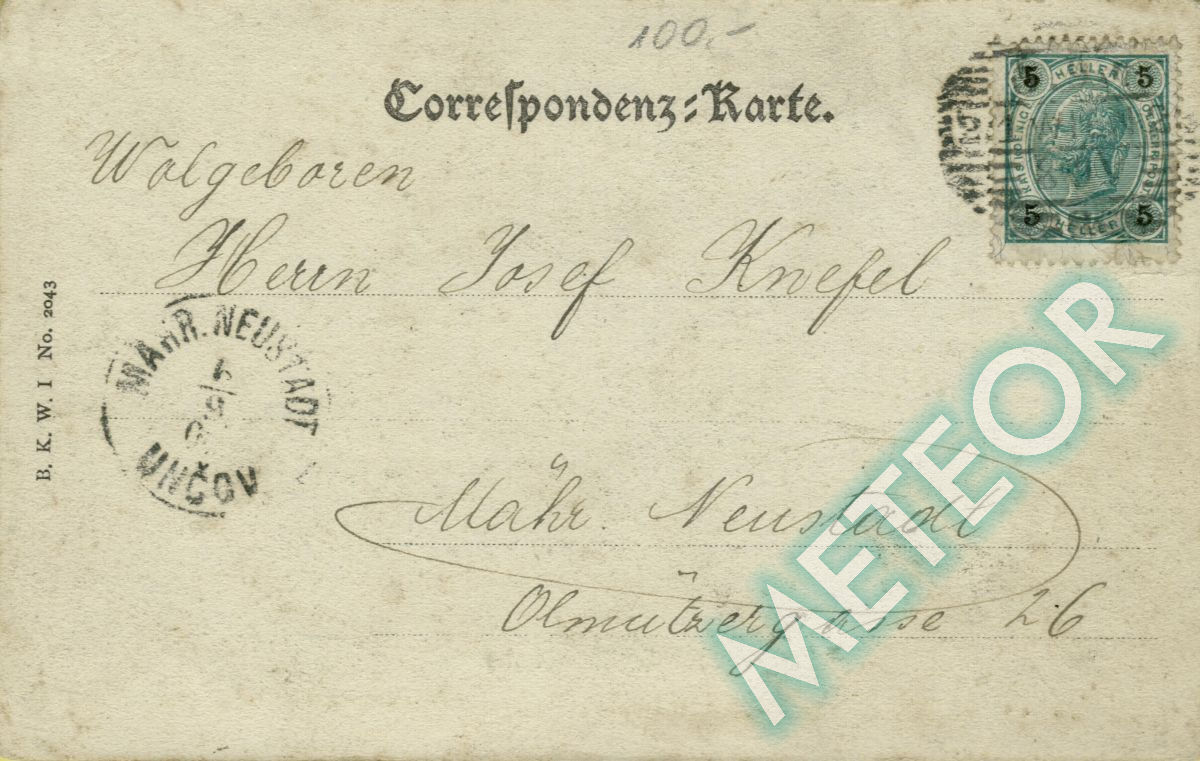 100,-
Correspondenz=Karte.
Wolgeboren
Herrn Josef Knefel
B. K. W. I No. 2043
MÄHR. NEUSTADT
UNČOV
Mähr. Neustadt
Olmützergasse 26
5 HELLER 5
5 HELLER 5
METEOR